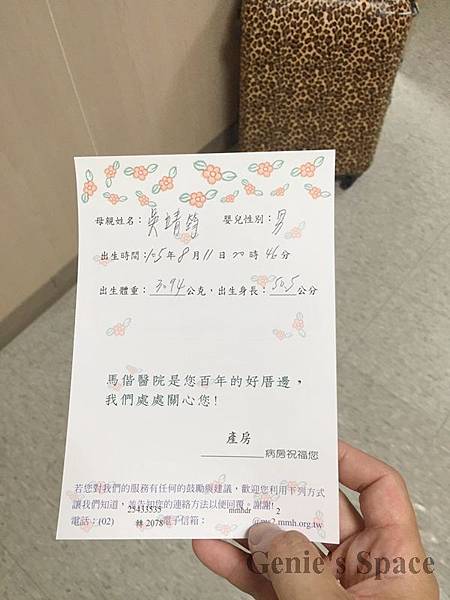 母親姓名：吳靖鈞 嬰兒性別：男
出生時間：105年8月11日20時46分
出生體重：3094公克，出生身長：50.5公分
馬偕醫院是您百年的好厝邊，
我們處處關心您！
產房
病房祝福您
若您對我們的服務有任何的鼓勵與建議，歡迎您利用下列方式
讓我們知道，並告知您的連絡方法以便回覆，謝謝！
電話：(02) 25433535 轉 2078 電子信箱： mmhdr 2 @ms2.mmh.org.tw
Genie's Space